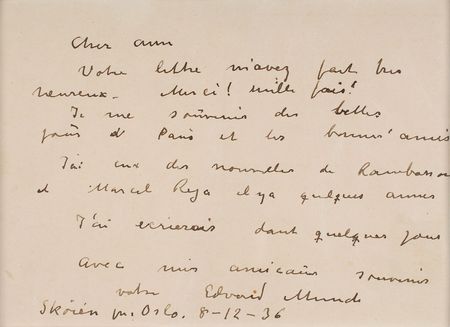 Cher ami
Votre lettre m'avez fait tres
heureux. Merci! mille fois!
Je me souvenir des belles
jours d Paris et les bonnes amis
J'ai eux des nouvelles de
et Marcel Reja il ya quelques annes
J'ai ecrierais dant quelques jours
Avec mis amicaus souvenirs
votre Edvard Munch
Skøien pr. Oslo. 8-12-36